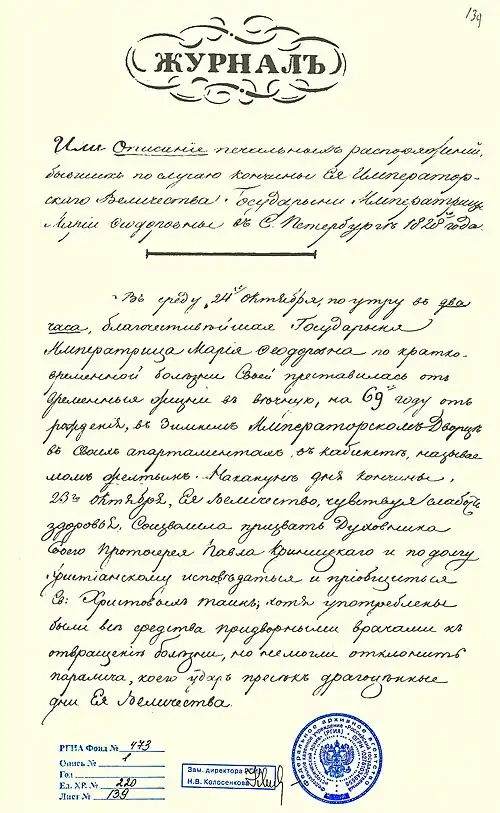 139
ЖУРНАЛЪ
Или Описаніе печальныхъ распоряженій,
бывшихъ по случаю кончины Ея Император-
скаго Величества Государыни Императрицы
Маріи Ѳеодоровны въ С. Петербургѣ 1828го года.
Въ среду 24го октября, по утру въ два
часа, благочестивѣйшая Государыня
Императрица Марія Ѳеодоровна по кратко-
временной болезни Своей преставилась отъ
временныя жизни въ вѣчную, на 69м году отъ
рожденія, въ Зимнемъ Императорскомъ Дворцѣ
въ Своихъ апартаментахъ, въ кабинетѣ, называе
момъ Наканунѣ дня кончины,
23го октября, Ея Величество, чувствуя слабость
здоровья, Соизволила призвать Духовника
Своего Протоіерея Павла Криницкаго и по долгу
христіанскому исповѣдаться и пріобщиться
Св: Христовымъ таинъ; хотя употреблены
были всѣ средства придворными врачами къ
отвращенію болезни, но не могли отклонить
паралича, коего ударъ пресѣкъ драгоцѣнные
дни Ея Величества.
РГИА Фонд № 473
Опись № 1
Год
Ед. ХР. № 220
Лист № 139
Зам. директора РГИА
Н.В. Колосенкова